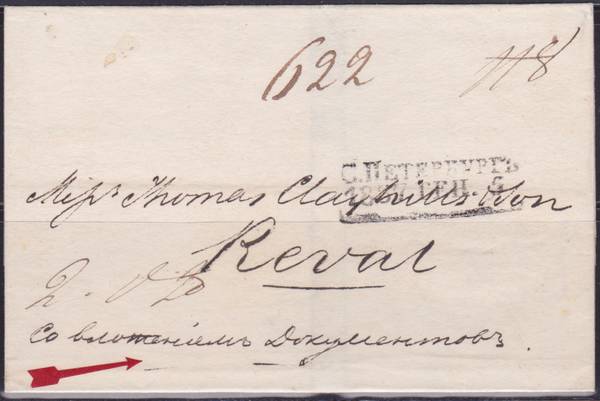 622 118
С. ПЕТЕРБУРГЪ
1837. ГЕН. 5
Messrs Thomas Clayhills & Son
Reval
2.
Со вложеніемъ Документовъ.